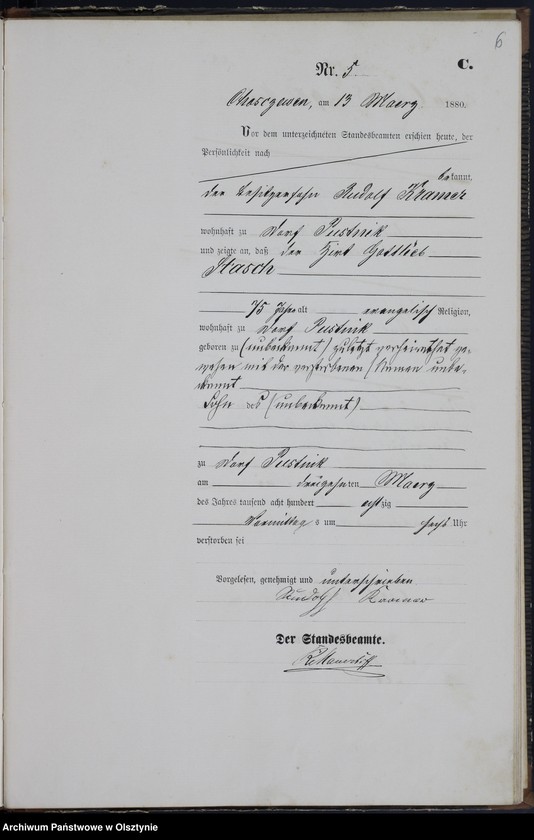 6
C.
Nr. 5.
am 13 Maerz 1880.
Vor dem unterzeichneten Standesbeamten erschien heute, der
Persönlichkeit nach
bekannt,
der Besitzersohn Rudolf Kramer
wohnhaft zu Dorf Pustnik
und zeigte an, daß der Hirt Gottlieb
Stasch
75 Jahre alt evangelisch Religion,
wohnhaft zu Dorf Pustnik
geboren zu (unbekannt) zuletzt verheirathet ge-
wesen mit der verstorbenen (Namen unbe-
kannt
Sohn des (unbekannt)
zu Dorf Pustnik
am dreizehnten Maerz
des Jahres tausend acht hundert achtzig
Vormittags um sechs Uhr
verstorben sei
Vorgelesen, genehmigt und unterschrieben
Rudolf Kramer
Der Standesbeamte.
Archiwum Państwowe w Olsztynie